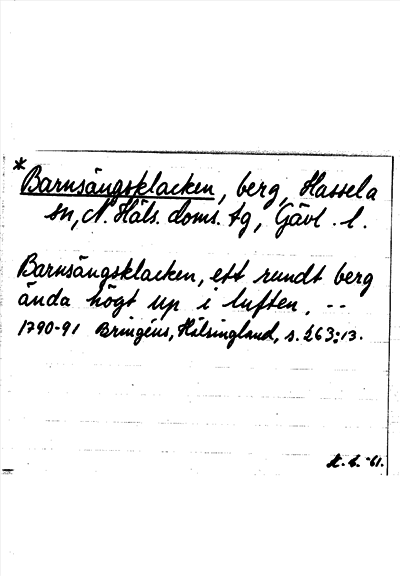 * Barnsängsklacken, berg, Hassela
sn, N. Häls. doms. tg, Gävl. l.
Barnsängsklacken, ett rundt berg
ända högt up i luften. --
1790-91 Bringéus, Hälsingland, s. 263:13.
-61.